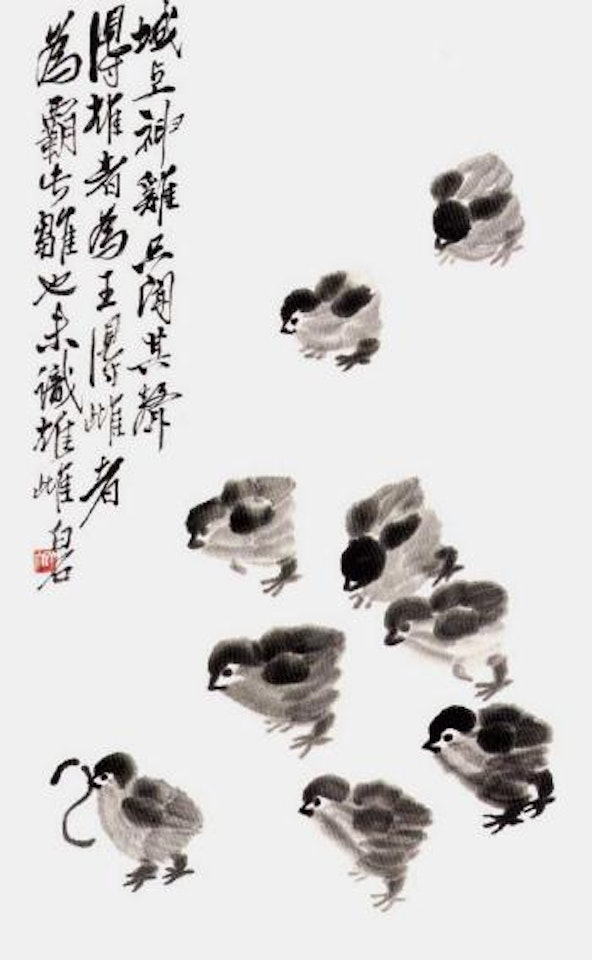 城上神雞只聞其聲
得雄者為王得雌者
為霸此雛也未識雄雌 白石